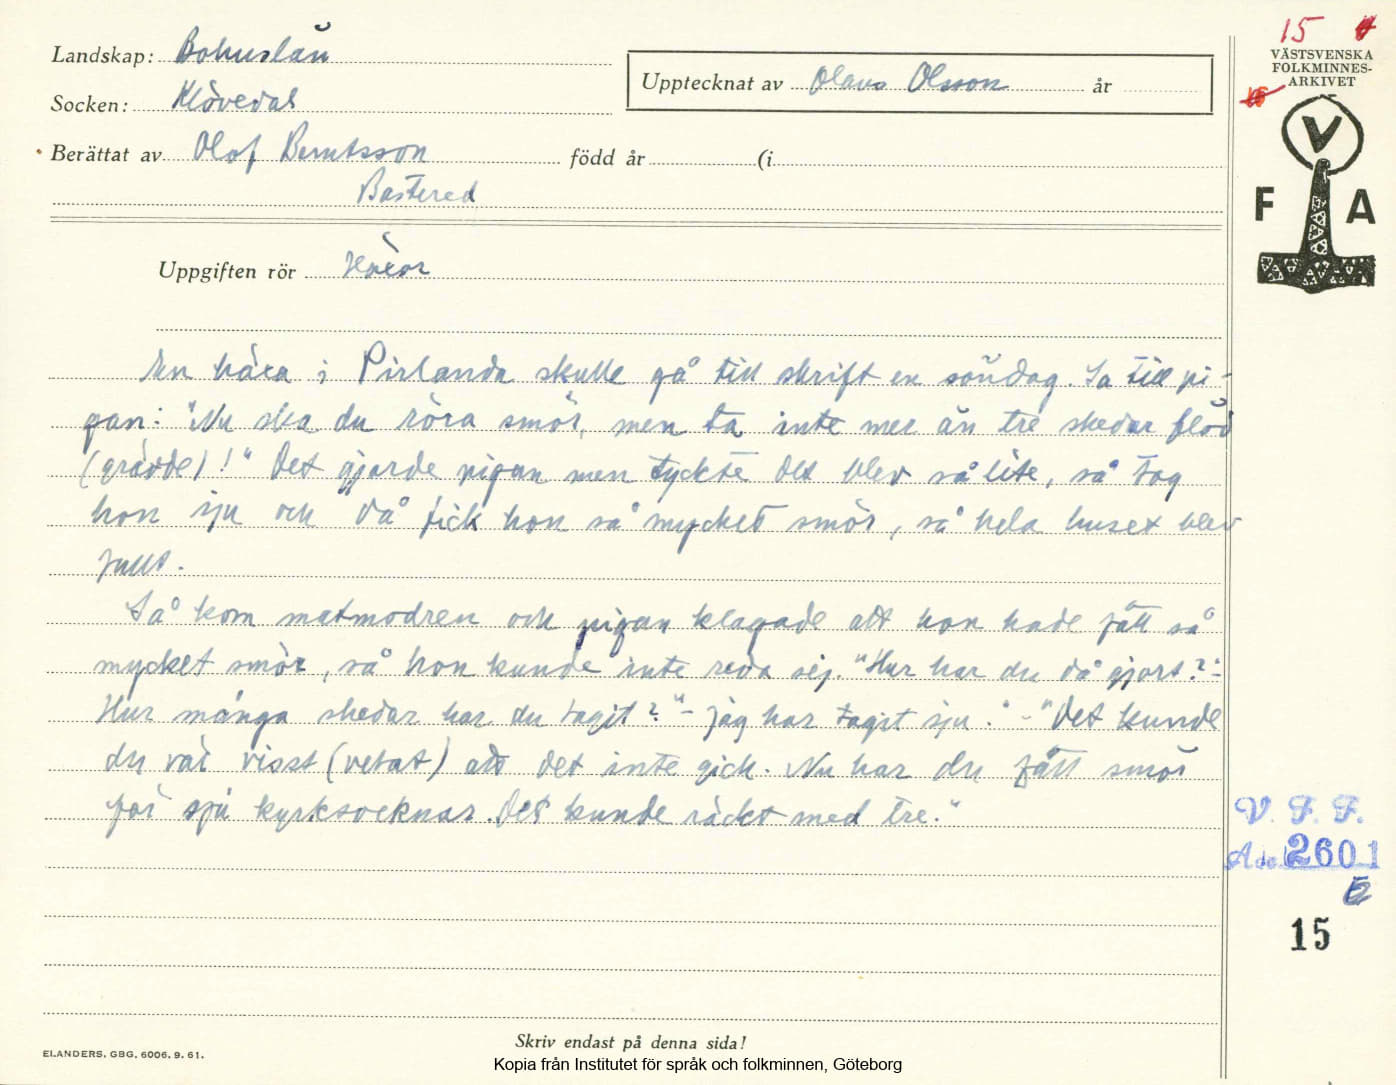 Landskap: Bohuslän
Socken: Klövedal
Upptecknat av Olavus Olsson år
Berättat av Olof Berntsson född år (i
Bastered
Uppgiften rör Häxor
En häxa i Pirlanda skulle gå till skrift en söndag. Sa till pi-
gan: "Nu ska du röra smör, men ta inte mer än tre skedar flöd
(grädde)!" Det gjorde pigan men tyckte det blev så lite, så tog
hon sju och då fick hon så mycket smör, så hela huset blev
fullt.
Så kom matmodren och pigan klagade att hon hade fått så
mycket smör, så hon kunde inte reda sej. "Hur har du då gjort? -
Hur många skedar har du tagit?" - Jag har tagit sju." - "Det kunde
du väl visst (vetat) att det inte gick. Nu har du fått smör
för sju kyrksocknar. Det kunde räckt med tre."
15
VÄSTSVENSKA
FOLKMINNES-
ARKIVET
V
F A
V. F. F.
Acc. 2601
15
Skriv endast på denna sida!
ELANDERS, GBG, 6006. 9. 61.
Kopia från Institutet för språk och folkminnen, Göteborg